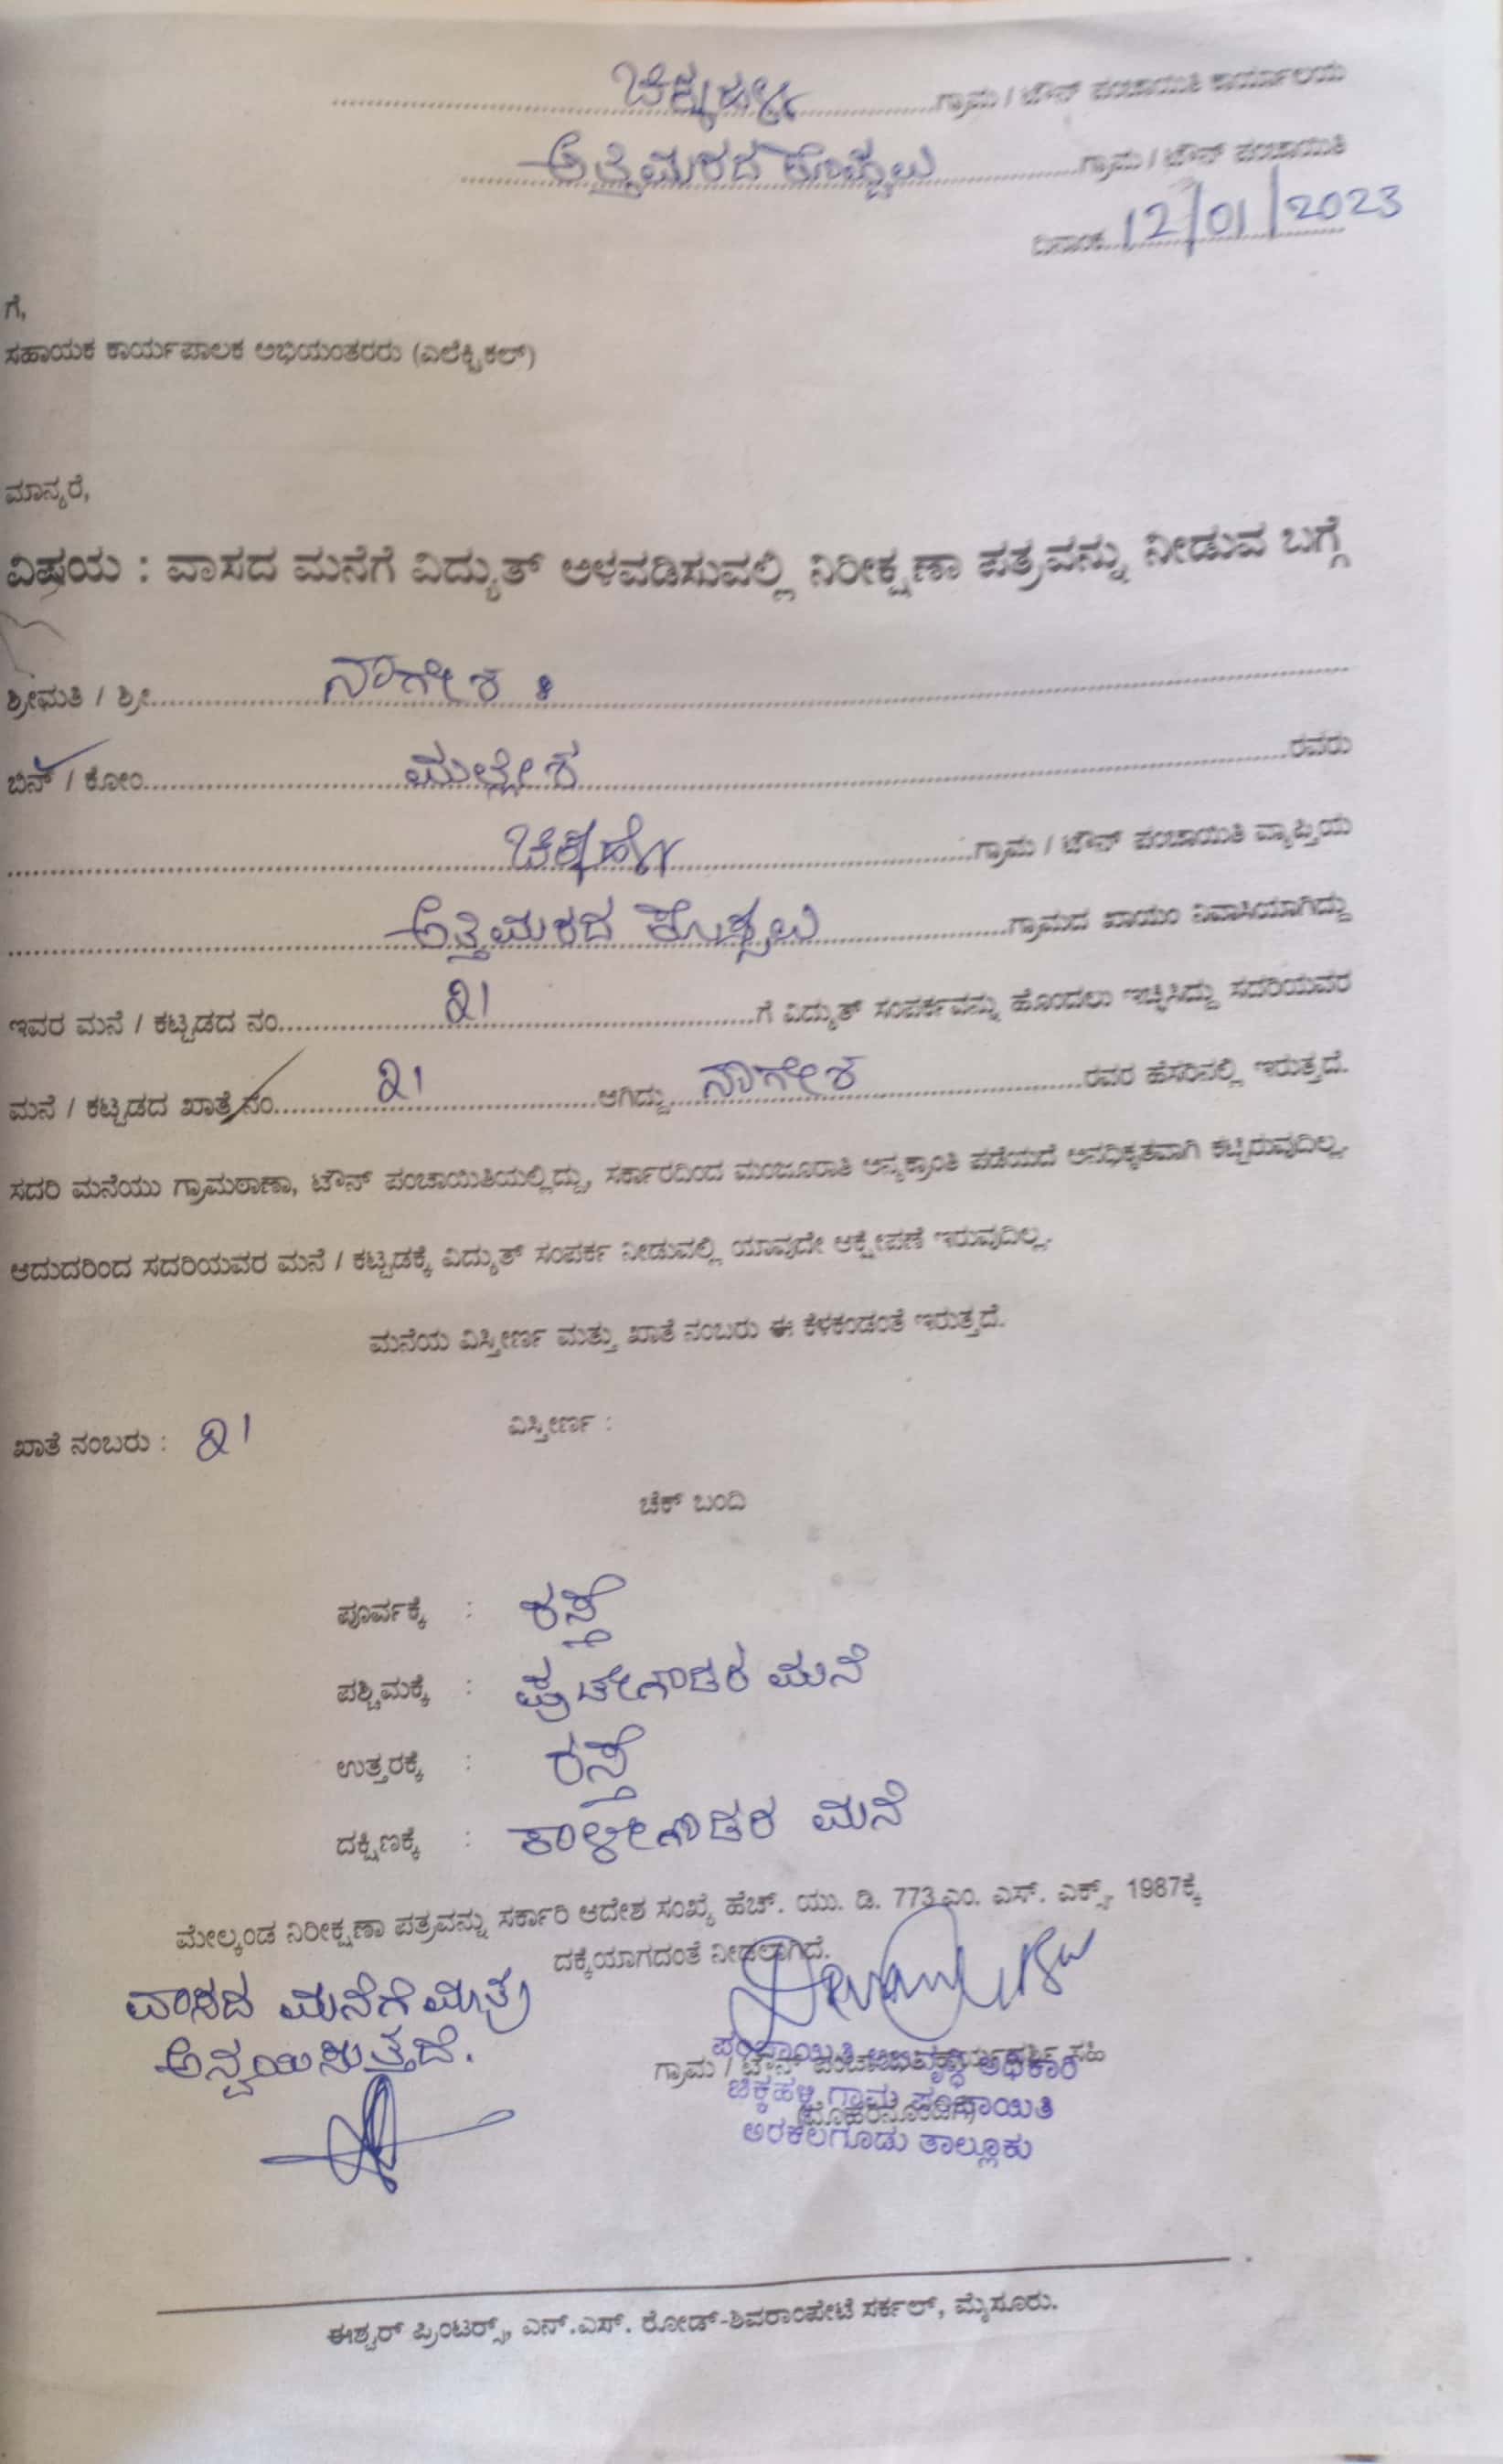 ಚಿಕ್ಕಹಳ್ಳಿ ಗ್ರಾಮ / ಟೌನ್ ಪಂಚಾಯಿತಿ ಕಾರ್ಯಾಲಯ
ಅತ್ತಿಮರದ ಕೊಪ್ಪಲು ಗ್ರಾಮ / ಟೌನ್ ಪಂಚಾಯಿತಿ
ದಿನಾಂಕ 12/01/2023
ಗೆ,
ಸಹಾಯಕ ಕಾರ್ಯಪಾಲಕ ಅಭಿಯಂತರರು (ಎಲೆಕ್ಟ್ರಿಕಲ್)
ಮಾನ್ಯರೆ,
ವಿಷಯ : ವಾಸದ ಮನೆಗೆ ವಿದ್ಯುತ್ ಅಳವಡಿಸುವಲ್ಲಿ ನಿರೀಕ್ಷಣಾ ಪತ್ರವನ್ನು ನೀಡುವ ಬಗ್ಗೆ
ಶ್ರೀಮತಿ / ಶ್ರೀ ನಾಗೇಶ
ಬಿನ್ / ಕೋಂ ಮಲ್ಲೇಶ ರವರು
ಚಿಕ್ಕಹಳ್ಳಿ ಗ್ರಾಮ / ಟೌನ್ ಪಂಚಾಯಿತಿ ವ್ಯಾಪ್ತಿಯ
ಅತ್ತಿಮರದ ಕೊಪ್ಪಲು ಗ್ರಾಮದ ಖಾಯಂ ನಿವಾಸಿಯಾಗಿದ್ದು
ಇವರ ಮನೆ / ಕಟ್ಟಡದ ನಂ. 21 ಗೆ ವಿದ್ಯುತ್ ಸಂಪರ್ಕವನ್ನು ಹೊಂದಲು ಇಚ್ಛಿಸಿದ್ದು ಸದರಿಯವರ
ಮನೆ / ಕಟ್ಟಡದ ಖಾತೆ ನಂ. 21 ಆಗಿದ್ದು ನಾಗೇಶ ರವರ ಹೆಸರಿನಲ್ಲಿ ಇರುತ್ತದೆ.
ಸದರಿ ಮನೆಯು ಗ್ರಾಮಠಾಣಾ, ಟೌನ್ ಪಂಚಾಯಿತಿಯಲ್ಲಿದ್ದು, ಸರ್ಕಾರದಿಂದ ಮಂಜೂರಾತಿ ಅನ್ಯಕ್ರಾಂತಿ ಪಡೆಯದೆ ಅನಧಿಕೃತವಾಗಿ ಕಟ್ಟಿರುವುದಿಲ್ಲ.
ಆದುದರಿಂದ ಸದರಿಯವರ ಮನೆ / ಕಟ್ಟಡಕ್ಕೆ ವಿದ್ಯುತ್ ಸಂಪರ್ಕ ನೀಡುವಲ್ಲಿ ಯಾವುದೇ ಆಕ್ಷೇಪಣೆ ಇರುವುದಿಲ್ಲ.
ಮನೆಯ ವಿಸ್ತೀರ್ಣ ಮತ್ತು ಖಾತೆ ನಂಬರು ಈ ಕೆಳಕಂಡಂತೆ ಇರುತ್ತದೆ.
ಖಾತೆ ನಂಬರು : 21 ವಿಸ್ತೀರ್ಣ :
ಚೆಕ್ ಬಂದಿ
ಪೂರ್ವಕ್ಕೆ : ರಸ್ತೆ
ಪಶ್ಚಿಮಕ್ಕೆ : ಮನೆ
ಉತ್ತರಕ್ಕೆ : ರಸ್ತೆ
ದಕ್ಷಿಣಕ್ಕೆ : ಕಾಳೇಗೌಡರ ಮನೆ
ಮೇಲ್ಕಂಡ ನಿರೀಕ್ಷಣಾ ಪತ್ರವನ್ನು ಸರ್ಕಾರಿ ಆದೇಶ ಸಂಖ್ಯೆ ಹೆಚ್. ಯು. ಡಿ. 773 ಎಂ. ಎಸ್. ಎಕ್ಸ್. 1987ಕ್ಕೆ
ದಕ್ಕೆಯಾಗದಂತೆ ನೀಡಲಾಗಿದೆ.
ವಾಸದ ಮನೆಗೆ ಮಾತ್ರ
ಅನ್ವಯಿಸುತ್ತದೆ.
ಪಂಚಾಯಿತಿ ಅಭಿವೃದ್ಧಿ ಅಧಿಕಾರಿ
ಗ್ರಾಮ / ಟೌನ್ ಪಂಚಾಯಿತಿ ಕಾರ್ಯದರ್ಶಿ ಸಹಿ
ಚಿಕ್ಕಹಳ್ಳಿ ಗ್ರಾಮ ಪಂಚಾಯಿತಿ
(ಮೊಹರಿನೊಂದಿಗೆ)
ಅರಕಲಗೂಡು ತಾಲ್ಲೂಕು
ಈಶ್ವರ್ ಪ್ರಿಂಟರ್ಸ್, ಎನ್.ಎಸ್. ರೋಡ್-ಶಿವರಾಂಪೇಟೆ ಸರ್ಕಲ್, ಮೈಸೂರು.